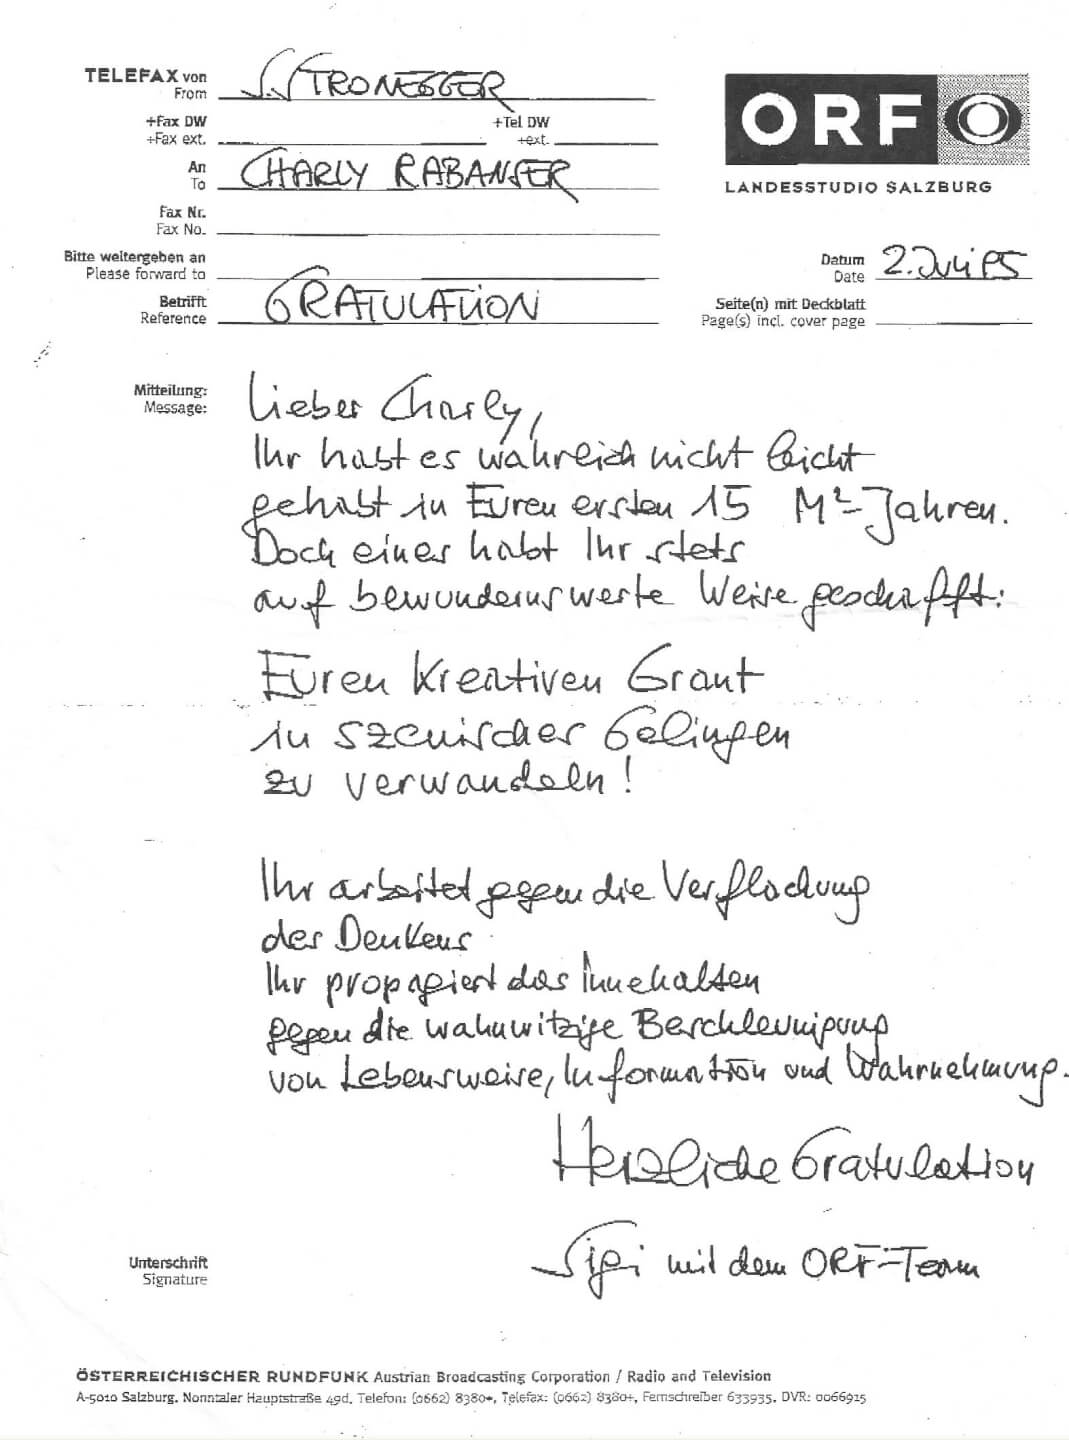 TELEFAX von
From
S. STRONEGGER
+Fax DW
+Fax ext.
+Tel DW
+ext.
An
To
CHARLY RABANSER
Fax Nr.
Fax No.
Bitte weitergeben an
Please forward to
Betrifft
Reference
GRATULATION
ORF
LANDESSTUDIO SALZBURG
Datum
Date
2. Juli 95
Seite(n) mit Deckblatt
Page(s) incl. cover page
Mitteilung:
Message:
Lieber Charly,
Ihr habt es wahrlich nicht leicht
gehabt in Euren ersten 15 M²-Jahren.
Doch eines habt Ihr stets
auf bewundernswerte Weise geschafft:
Euren kreativen Grant
in szenisches Gelingen
zu verwandeln!
Ihr arbeitet gegen die Verflachung
des Denkens
Ihr propagiert das Innehalten
gegen die wahnwitzige Beschleunigung
von Lebensweise, Information und Wahrnehmung.
Herzliche Gratulation
Unterschrift
Signature
Sigi mit dem ORF-Team
ÖSTERREICHISCHER RUNDFUNK Austrian Broadcasting Corporation / Radio and Television
A-5010 Salzburg, Nonntaler Hauptstraße 49d, Telefon: (0662) 8380+, Telefax: (0662) 8380+, Fernschreiber 633935, DVR: 0066915